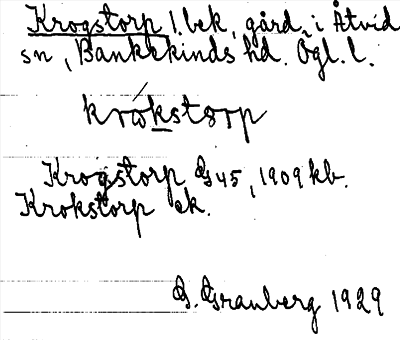 Krogstorp l. bek, gård, i Åtvid
sn, Bankekinds hd. Ögl. l.
krokstorp
Krogstorp G 45, 1909 kb.
Krokstorp ek.
G. Granberg 1929